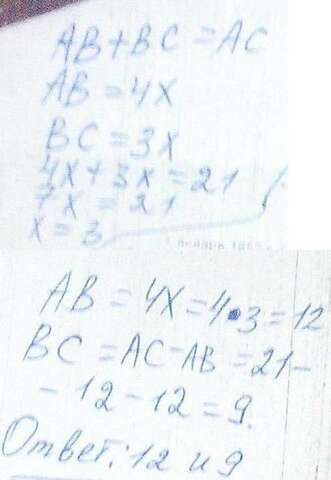 AB+BC=AC
AB=4x
BC=3x
4x+3x=21
7x=21
x=3
AB=4x=4•3=12
BC=AC-AB=21-
-12-12=9.
Ответ: 12 и 9